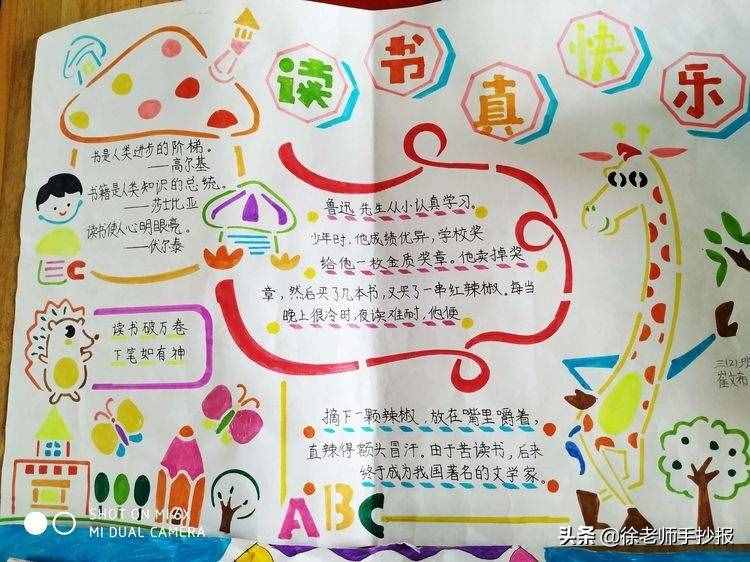 读书真快乐
书是人类进步的阶梯。
——高尔基
书籍是人类知识的总统。
——莎士比亚
读书使人心明眼亮。
——伏尔泰
鲁迅先生从小认真学习。
少年时,他成绩优异,学校奖
给他一枚金质奖章。他卖掉奖
章,然后买了几本书,又买了一串红辣椒。每当
晚上很冷时,夜读难耐,他便
摘下一颗辣椒,放在嘴里嚼着,
直辣得额头冒汗。由于苦读书,后来
终于成为我国著名的文学家。
读书破万卷
下笔如有神
ABC
三(2)班
SHOT ON MI 6X
MI DUAL CAMERA
头条 @徐老师手抄报